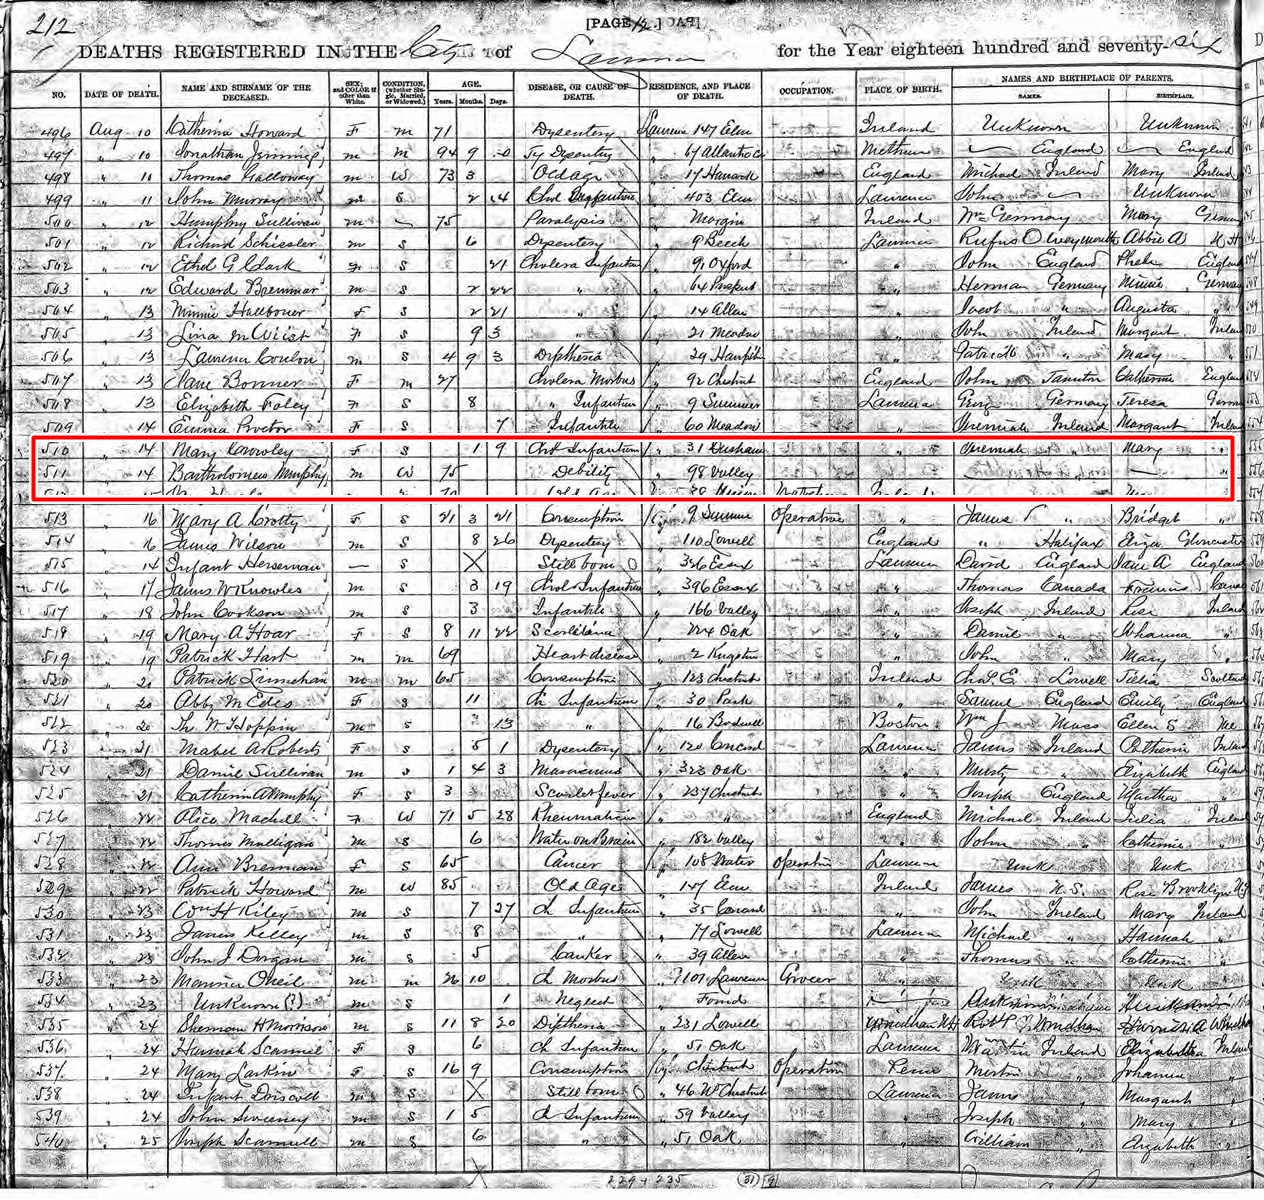 212
[PAGE 12.]
DEATHS REGISTERED IN THE City of Lawrence for the Year eighteen hundred and seventy-six
NO. DATE OF DEATH. NAME AND SURNAME OF THE DECEASED. SEX; and COLOR if other than White. CONDITION, (whether Single, Married, or Widowed.) AGE. Years. Months. Days. DISEASE, OR CAUSE OF DEATH. RESIDENCE, AND PLACE OF DEATH. OCCUPATION. PLACE OF BIRTH. NAMES AND BIRTHPLACE OF PARENTS. NAMES. BIRTHPLACE.
496 Aug 10 Catherine Howard F m 71 Dysentery Lawrence 147 Elm Ireland Unknown Unknown
497 " 10 Jonathan Jennings m m 94 9 Ty Dysentery " 67 Atlantic Co Methuen England England
498 " 10 Thomas Galloway m W 73 3 Old Age " 17 Hancock England Michael Ireland Mary Ireland
499 " 11 John Murray m S 2 14 Chol Infantum " 403 Elm Lawrence John Unknown
500 " 12 Humphry Sullivan m 75 Paralysis " Margin Ireland Wm Germany Mary
501 " 12 Richard Schiesler m S 6 Dysentery " 9 Beech Lawrence Rufus O Weymouth Abbie A N H
502 " 12 Ethel G Clark F S 21 Cholera Infantum " 91 Oxford " John England Phebe England
503 " 12 Edward Bremmar m S 2 22 " " 64 Prospect " Herman Germany Minnie Germany
504 " 13 Minnie Hallbouer F S 2 21 " " 14 Allen " Jacob " Augusta "
505 " 13 Lina McQuist F S 9 3 " 21 Meadow " John Ireland Margaret Ireland
506 " 13 Lawrence Conlon m S 4 9 3 Diptheria " 29 Hampsh " Patrick " Mary "
507 " 13 Jane Bonner F m 27 Cholera Morbus " 92 Chestnut England John Taunton Catherine England
508 " 13 Elizabeth Foley F S 8 " Infantum " 9 Summer Lawrence Germany Teresa
509 " 14 Emma Proctor F S 7 Infantile " 60 Meadow " Jeremiah Ireland Margaret Ireland
510 " 14 Mary Crowley F S 1 9 Chol Infantum " 31 Durham " Jeremiah " Mary "
511 " 14 Bartholomew Murphy m W 75 Debility " 98 Valley "
513 " 16 Mary A Crotty F S 21 3 21 Consumption " 9 Summer Operative " James " Bridget "
514 " 16 James Wilson m S 8 26 Dysentery " 110 Lowell England " Halifax Eliza Gloucester
515 " 14 Infant Herseman S X Still born " 346 Essex Lawrence David England Jane A England
516 " 17 James W Knowles m S 3 19 Chol Infantum " 396 Essex " Thomas Canada
517 " 18 John Cookson m S 3 Infantile " 166 Valley " Joseph Ireland Rose Ireland
518 " 19 Mary A Hoar F S 8 11 22 Scarlitana " 224 Oak " Daniel " Johanna "
519 " 19 Patrick Hart m m 69 Heart disease " 2 Kingston John " Mary "
520 " 21 Patrick Linnehan m m 65 Consumption " 123 Chestnut Ireland Chas E Lowell Julia Scotland
521 " 20 Abby M Edes F S 11 Ch Infantum " 30 Park " Samuel England Emily England
522 " 20 Th W Hoppin m S 3 13 " " 16 Bodwell Boston Wm J Mass Ellen S Me
523 " 21 Mabel A Roberts F S 5 1 Dysentery " 120 Concord Lawrence James Ireland Catherine Ireland
524 " 21 Daniel Sullivan m S 1 4 3 Marasmus " 323 Oak " Murty " Elizabeth England
525 " 21 Catherine A Murphy F S 3 Scarlet fever " 237 Chestnut " Joseph England Martha "
526 " 22 Alice Machell F W 71 5 28 Rheumatism " " England Michael Ireland Julia Ireland
527 " 22 Thomas Mulligan m S 6 Water on Brain " 182 Valley " John " Catherine "
528 " 22 Ann Brennan F S 65 Cancer " 108 Water Operative Lawrence Unk Unk
529 " 22 Patrick Howard m W 85 Old Age " 147 Elm Ireland James N.S. Rose Brooklyn N.Y
530 " 23 Wm H Riley m S 7 27 Ch Infantum " 35 Garand " John Ireland Mary Ireland
531 " 23 James Kelley m S 8 " " 77 Lowell Lawrence Michael " Hannah "
532 " 23 John J Dorgan m S 5 Canker " 39 Allen " Thomas " Catherine "
533 " 23 Maurice Oneil m m 26 10 Ch Morbus " 101 Lawrence Grocer " Unk Unk
534 " 23 Unknown (?) m S 1 Neglect Found Unknown Unknown
535 " 24 Sherman H Morrison m S 11 8 20 Diptheria " 231 Lowell Windham N H Robt J Windham Windham
536 " 24 Hannah Scannel F S 6 Ch Infantum " 51 Oak Lawrence Martin Ireland Elizabeth Ireland
537 " 24 Mary Larkin F S 16 9 Consumption " Chestnut Operative Penn Martin " Johanna "
538 " 24 Infant Driscoll m S X Still born " 46 W Chestnut Lawrence James " Margaret "
539 " 24 John Sweeney m S 1 5 Ch Infantum " 59 Valley " Joseph " Mary "
540 " 25 Joseph Scannell m S 6 " " 51 Oak " William " Elizabeth "
229 + 235 (31) 9